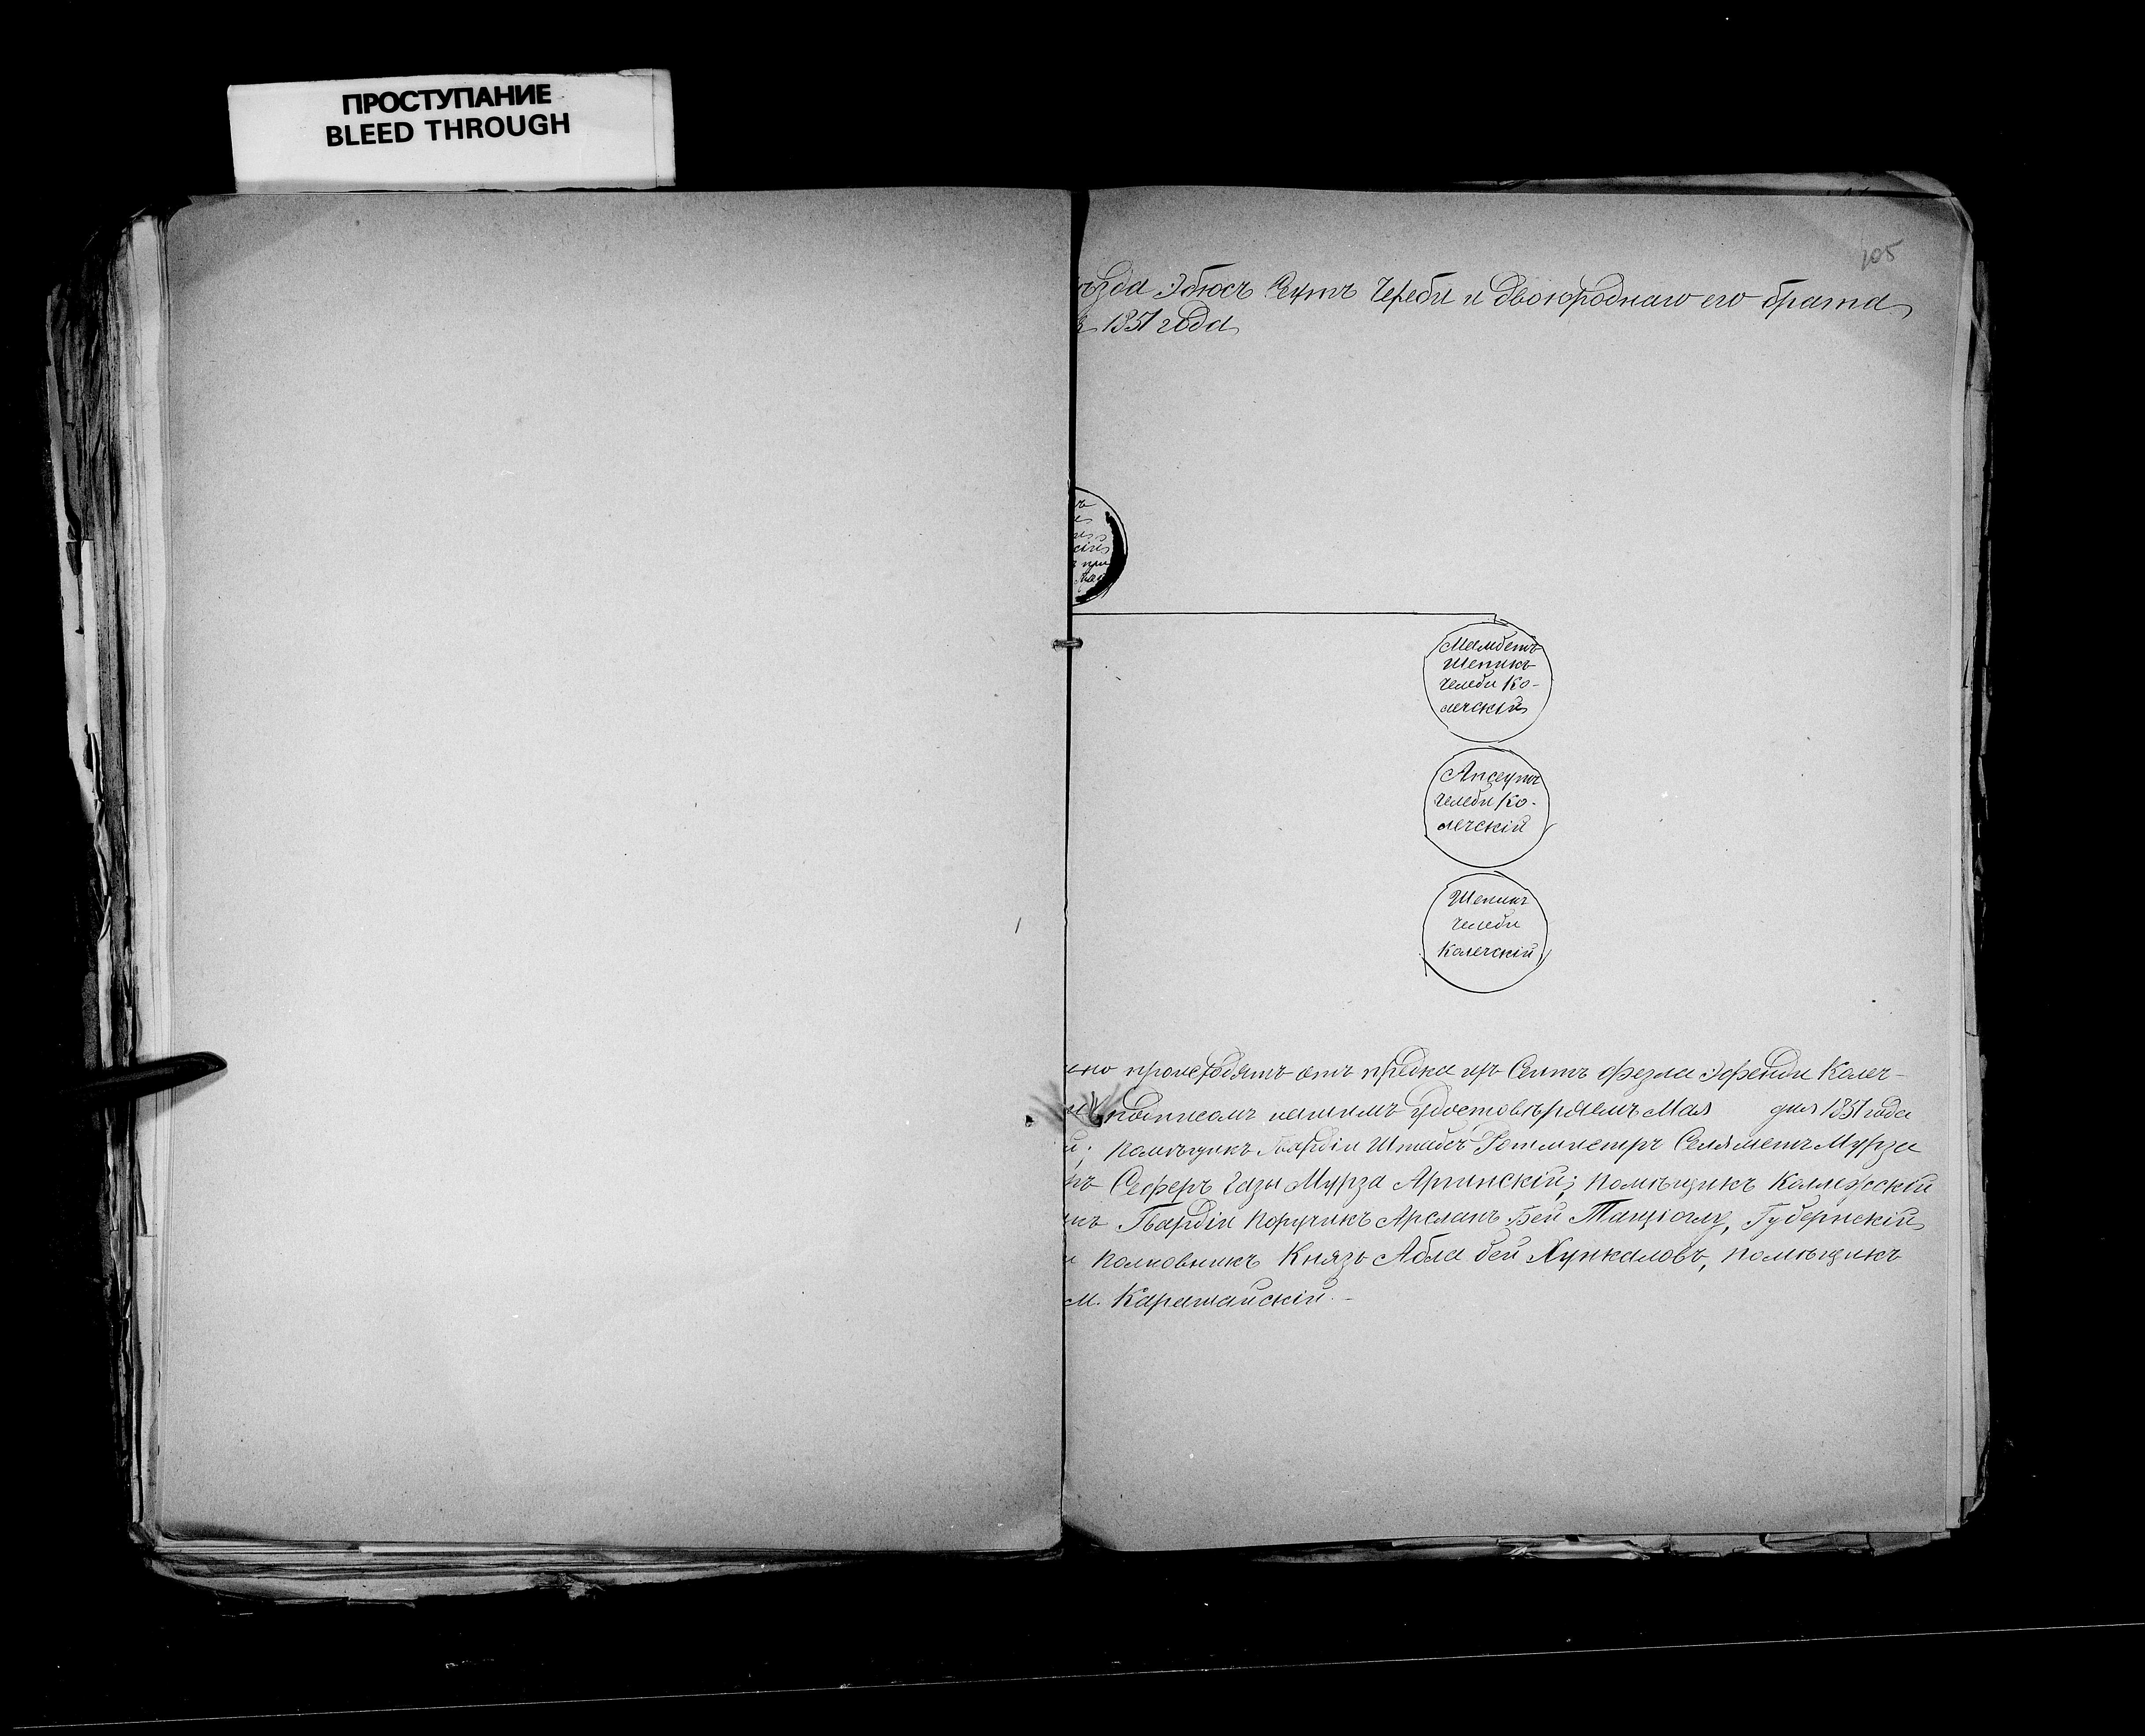 ПРОСТУПАНИЕ
BLEED THROUGH
105
ѣзда Эбюсъ Сеутъ Челеби и двоюроднаго его брата
1851 года
скій
при
Мамбетъ
Шепикъ
Челеби Ко-
лечскій
Апсеутъ
Челеби Ко-
лечскій
Шепикъ
Челеби
Колечскій
но происходятъ отъ предка ихъ Сеитъ Фезла Эфенди Колеч-
подписомъ нашимъ удостовѣряемъ Мая дня 1851 года
й; Помѣщикъ Гвардіи Штабсъ Ротмистръ Селяметъ Мурза
Сеферъ Газы Мурза Аргинскій; Помѣщикъ Коллежскій
Гвардіи Поручикъ Арсланъ Бей Ташіоглу, Губернскій
Полковникъ Князь Абла бей Хункаловъ, Помѣщикъ
м. Карашайскій.